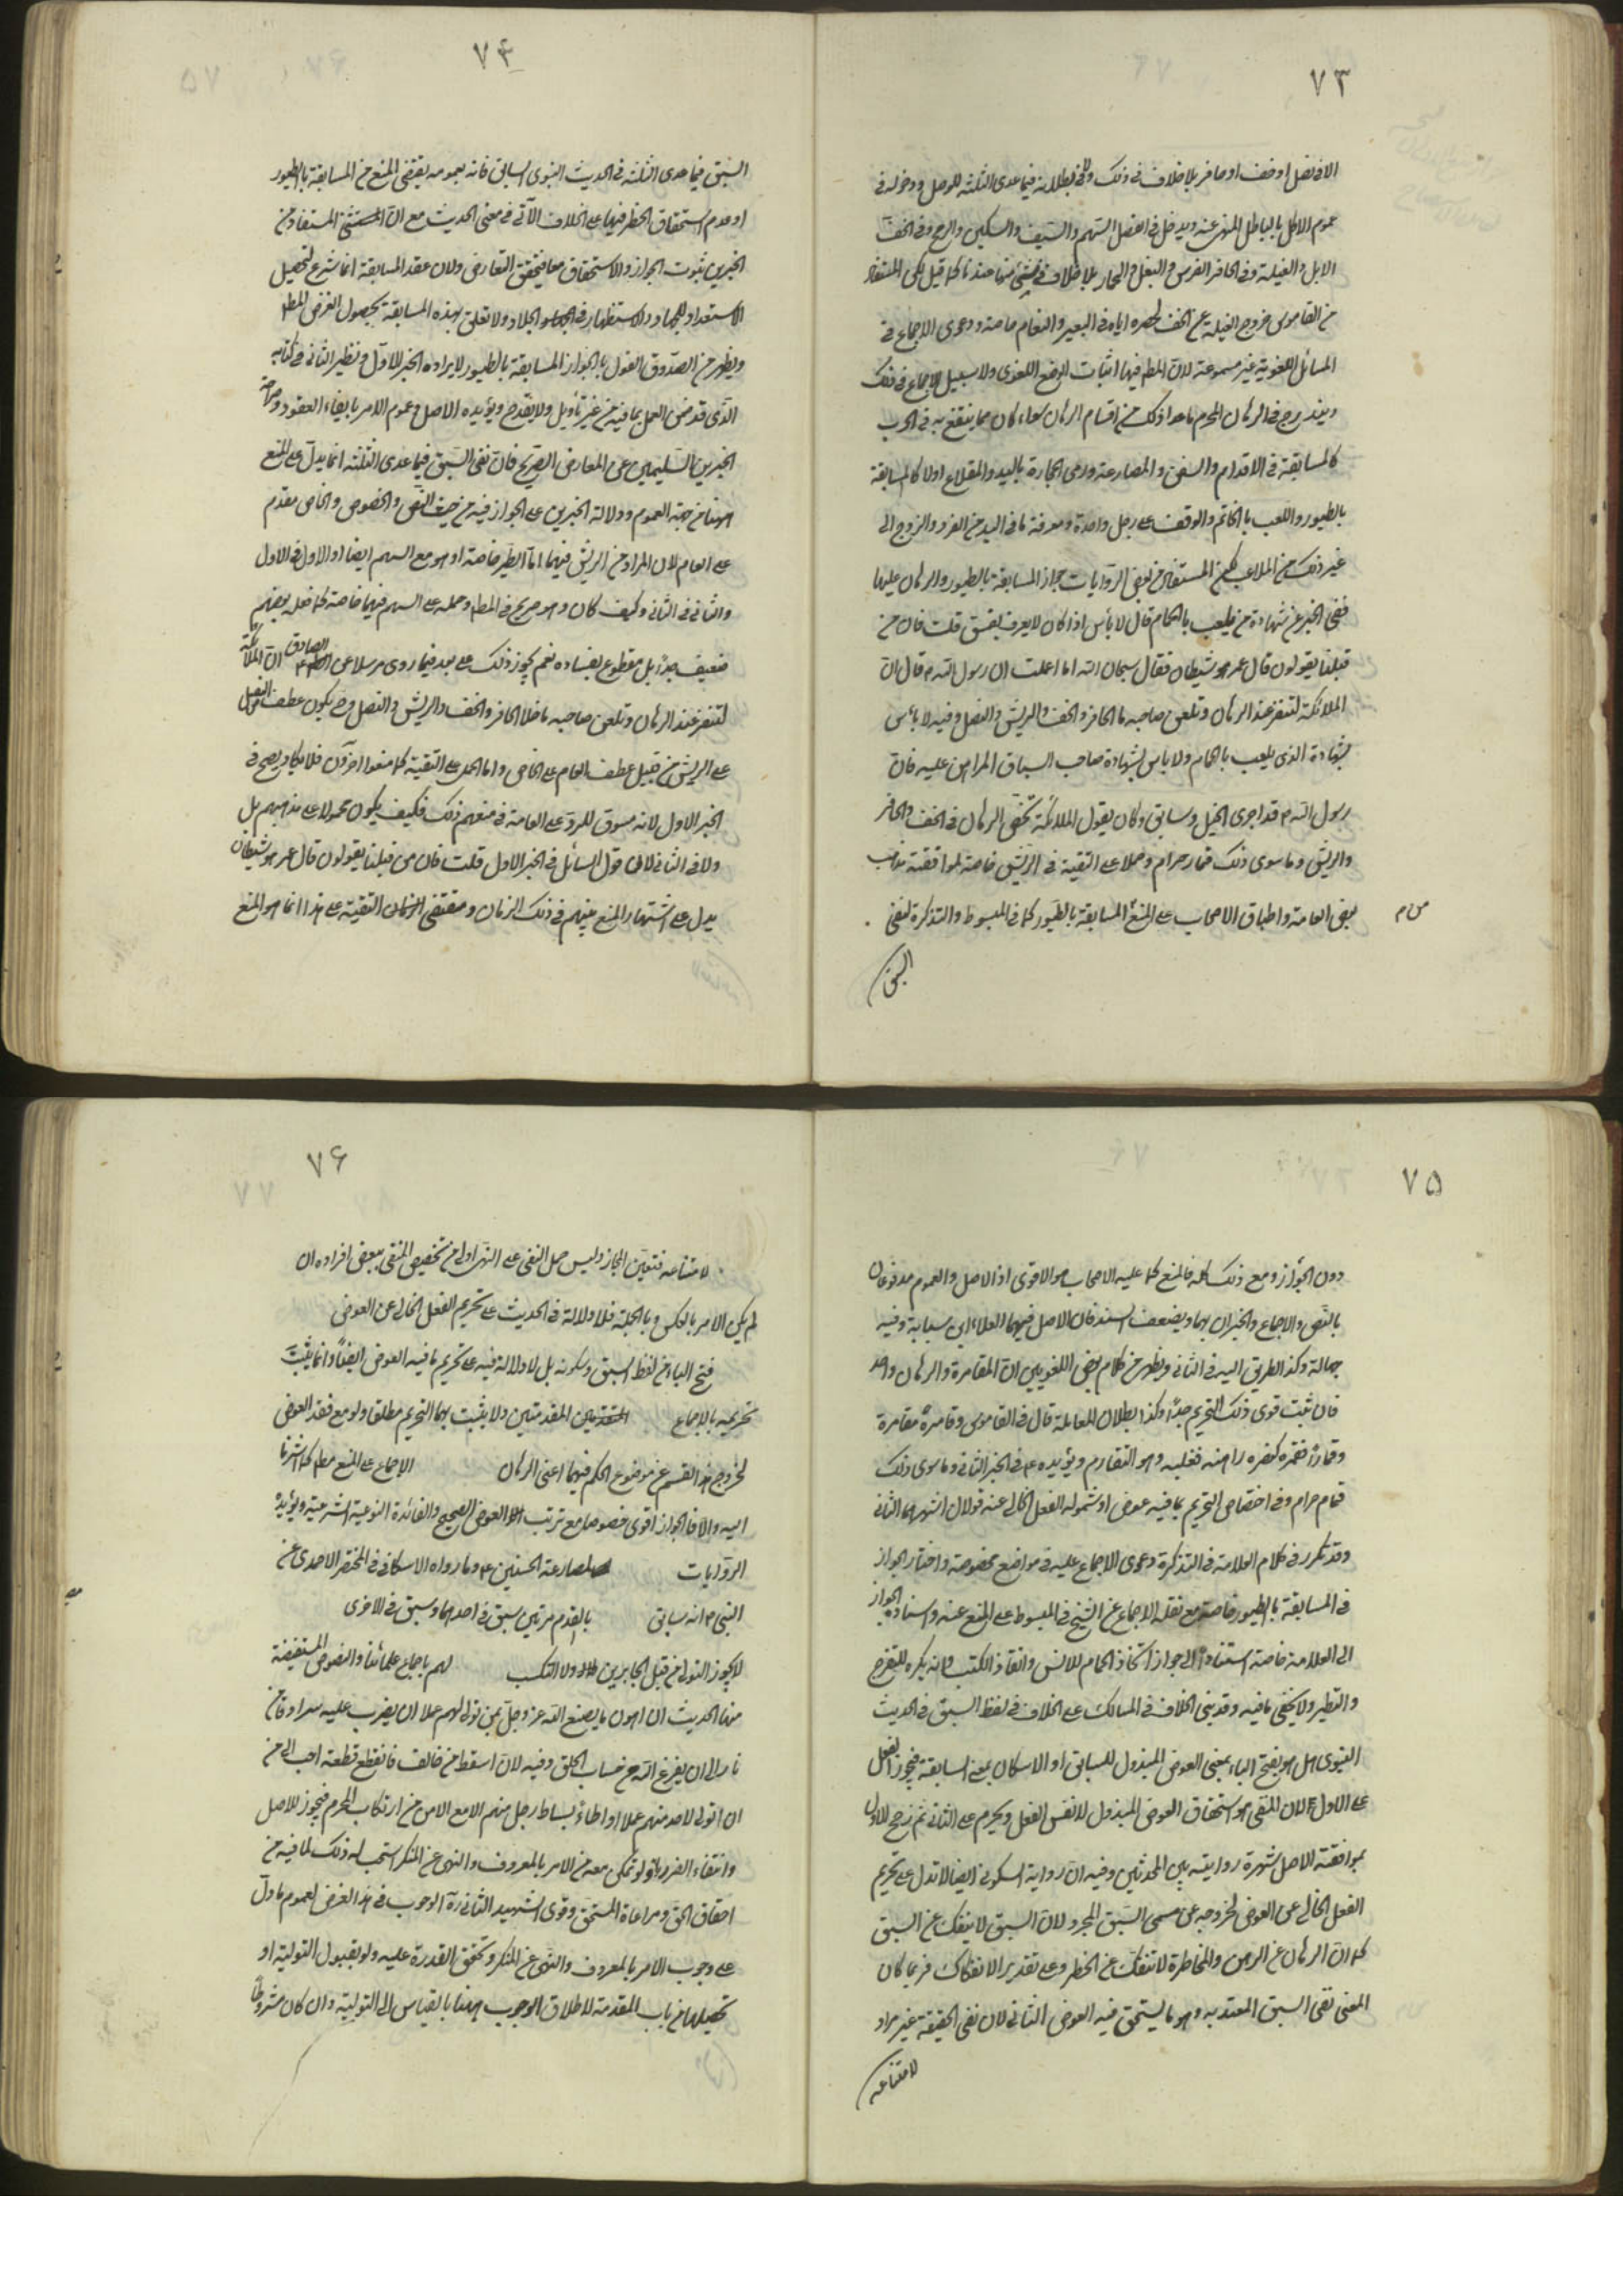 ٧٣
الا فی نصل او خف او حافر بلا خلاف فی ذلک وفی بطلانه فیما عدی الثلثة للاصل ودخوله فی
عموم الاکل بالباطل المنهی عنه ویدخل فی النصل السهم والسیف والسکین والرمح وفی الخف
الابل والفیلة وفی الحافر الفرس والبغل والحمار بلا خلاف فی شیء منها عندنا کما قیل لکن المستفاد
من القاموس خروج الفیلة عن الخف لحصره ایاه فی البعیر والنعام خاصة ودعوی الاجماع فی
المسائل اللغویة غیر مسموعة لان المطم فیها اثبات الوضع اللغوی ولا سبیل للاجماع فی ذلک
ویندرج فی الرهان المحرم ما عدا ذلک من اقسام الرهان سواء کان مما ینتفع به فی الحرب
کالمسابقة فی الاقدام والسفن والمصارعة ورمی الحجارة بالید والمقلاع اولا کالمسابقة
بالطیور واللعب بالخاتم والوقف علی رجل واحدة ومعرفة ما فی الید من الفرد والزوج الی
غیر ذلک من الملاعب لکن المستفاد من بعض الروایات جواز المسابقة بالطیور والرهان علیها
ففی الخبر عن شهادة من یلعب بالحمام قال لا بأس اذا کان لا یعرف بفسق قلت فان من
قبلنا یقولون قال عمر هو شیطان فقال سبحان الله اما علمت ان رسول الله م قال ان
الملائکة لتنفر عند الرهان وتلعن صاحبه ما خلا الحافر والخف والریش والنصل وفیه لا بأس
بشهادة الذی یلعب بالحمام ولا بأس بشهادة صاحب السباق المراهن علیه فان
رسول الله م قد اجری الخیل وسابق وکان یقول الملائکة تحضر الرهان فی الخف والحافر
والریش وما سوی ذلک قمار حرام وحملا علی التقیة فی الریش خاصة لموافقته مذاهب
بعض العامة واطباق الاصحاب علی المنع المسابقة بالطیور کما فی المبسوط والتذکرة لنفی
من م
السبق
٧۴
السبق فیما عدی الثلثة فی الحدیث النبوی السابق فانه بعمومه یقتضی المنع من المسابقة بالطیور
او عدم استحقاق الخطر فیها علی الخلاف الآتی فی معنی الحدیث مع ان المستفاد من
الخبرین ثبوت الجواز والاستحقاق معا فیتحقق التعارض ولان عقد المسابقة انما شرع لتحصیل
الاستعداد للجهاد والاستظهار فی الجلاد ولا تعلق بهذه المسابقة بحصول الغرض المطم
ویظهر من الصدوق القول بالجواز المسابقة بالطیور لایراده الخبر الاول ونظیر الثانی فی کتابه
الذی قد ضمن العمل بما فیه من غیر تأویل ولا یقدح ویؤیده الاصل وعموم الامر بایفاء العقود وصراحة
الخبرین السلیمین عن المعارض الصریح فان نفی السبق فیما عدی الثلثة انما یدل علی المنع
ههنا من جهة العموم ودلالة الخبرین علی الجواز فیه من حیث النص والخصوص والخاص مقدم
علی العام لان المراد من الریش فیهما اما الطیر خاصة او هو مع السهم ایضا او الاول فی الاول
والثانی فی الثانی وکیف کان وهو صریح فی المطم وحمله علی السهم فیهما خاصة کما فعله بعضهم
ضعیف جدا بل مقطوع بفساده نعم یجوز ذلک علی بعد فیما روی مرسلا عن الصادق ان الملائکة
لتنفر عند الرهان وتلعن صاحبه ما خلا الحافر والخف والریش والنصل وح یکون عطف النصل
علی الریش من قبیل عطف العام علی الخاص واما الحمل علی التقیة کما صنعوا آخرون فلا یکاد یصح فی
الخبر الاول لانه مسوق للرد علی العامة فی منعهم ذلک فکیف یکون محمولا علی مذاهبهم بل
ولا فی الثانی لان قول السائل فی الخبر الاول قلت فان من قبلنا یقولون قال عمر هو شیطان
یدل علی اشتهار المنع بینهم فی ذلک الزمان ومقتضی التقیة علی هذا انما هو المنع
٧۵
دون الجواز ومع ذلک کله فالمنع کما علیه الاصحاب هو الاقوی اذ الاصل والعموم مدفوعان
بالنص والاجماع والخبران بهما وبضعف السند فان الاصل فیهما العلاء ابن سیابة وفیه
جهالة وکذا الطریق الیه فی الثانی ویظهر من کلام بعض اللغویین ان المقامرة والرهان واحد
فان ثبت قوی ذلک التحریم جدا وکذا بطلان المعاملة قال فی القاموس وقامره مقامرة
وقمارا فقمره کنصره راهنه فغلبه وهو التقامر ویؤیده فی الخبر الثانی وما سوی ذلک
قمار حرام وفی اختصاص التحریم بما فیه عوض او شموله الفعل الخالی عنه قولان اشهرهما الثانی
وقد تکرر فی کلام العلامة فی التذکرة دعوی الاجماع علیه فی مواضع مخصوصة واختار الجواز
فی المسابقة بالطیور خاصة مع نقله الاجماع عن الشیخ فی المبسوط علی المنع عنه واسناده الجواز
الی العلامة خاصة استنادا الی جواز اتخاذ الحمام للانس وانفاذ الکتب وانه یکره للتفرج
والتطیر ولا یخفی ما فیه وقد بنی الخلاف فی المسالک علی الخلاف فی لفظ السبق فی الحدیث
النبوی هل هو بفتح الباء بمعنی العوض المبذول للسابق او الاسکان بمعنی المسابقة فیجوز الفعل
علی الاول لان المنفی هو استحقاق العوض المبذول لا نفس الفعل ویحرم علی الثانی ثم رجح الاول
بموافقته الاصل وشهرة روایته بین المحدثین وفیه ان روایة السکون ایضا لا تدل علی تحریم
الفعل الخالی عن العوض لخروجه عن مسمی السبق المجرد لان السبق لا ینفک عن السبق
کما ان الرهان عن الرهن والمخاطرة لا تنفک عن الخطر وعلی تقدیر الانفکاک فربما کان
المعنی نفی السبق المعتد به وهو ما یستحق فیه العوض الثانی لان نفی الحقیقة غیر مراد
لامتناعه
٧۶
لامتناعه فتعین المجاز ولیس حمل النفی علی النهی اولی من تخصیص المنفی ببعض افراده ان
لم یکن الامر بالعکس وبالجملة فلا دلالة فی الحدیث علی تحریم الفعل الخالی عن العوض
فتح الباء من لفظ السبق وسکونه بل لا دلالة فیه علی تحریم ما فیه العوض ایضا وانما یثبت
تحریمه بالاجماع المقدمتین ولا یثبت بهما التحریم مطلقا ولو مع فقد العوض
لخروج هذا القسم عن موضوع الحکم فیهما اعنی الرهان الاجماع علی المنع مطم کما اشرنا
الیه والا فالجواز اقوی خصوصا مع ترتب العوض الصحیح والفائدة النوعیة الشرعیة ویؤیده
الروایات مصارعة الحسنین وما رواه الاسکافی فی المختصر الاحمدی عن
النبی م انه سابق بالقدم مرتین سبق فی احدهما وسبق فی الاخری
لا یجوز التولی من قبل الجابرین ولا التکسب لهم باجماع علمائنا والنصوص المستفیضة
منها الحدیث ان اهون ما یصنع الله عز وجل بمن تولی لهم عملا ان یضرب علیه سرادق من
نار الی ان یفرغ الله من حساب الخلق وفیه لان اسقط من حالق فانقطع قطعة احب الی من
ان اتولی لاحد منهم عملا او اطاء بساط رجل منهم الا مع الامن من ارتکاب المحرم فیجوز للاصل
وانتفاء الضرر ولو تمکن معه من الامر بالمعروف والنهی عن المنکر استحب له ذلک لما فیه من
احقاق الحق ومراعاة المستحق وقوی الشهید الثانی ره الوجوب فی هذا الفرض لعموم ما دل
علی وجوب الامر بالمعروف والنهی عن المنکر وتحقق القدرة علیه ولو بقبول التولیة او
تحصیلها من باب المقدمة لاطلاق الوجوب ههنا بالقیاس الی التولیة وان کان مشروطا